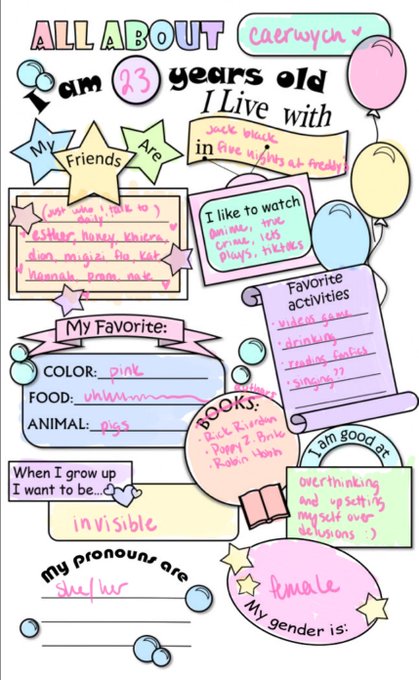 ALL ABOUT caerwych ♥
I am 23 years old
I Live with
jack black
in five nights at freddy's
My Friends Are
(just who i talk to
daily)
esther, honey, khiera,
dion, migizi, flo, kat
hannah, prom, nate
I like to watch
anime, true
crime, lets
plays, tiktoks
Favorite
activities
• videos game
• drinking
• reading fanfics
• singing??
My Favorite:
COLOR: pink
FOOD: uhhmm
ANIMAL: pigs
authors
BOOKS:
• Rick Riordan
• Poppy Z. Brite
• Robin Hobb
I am good at
overthinking
and upsetting
myself over
delusions :)
When I grow up
I want to be...
invisible
My pronouns are
she/her
female
My gender is: